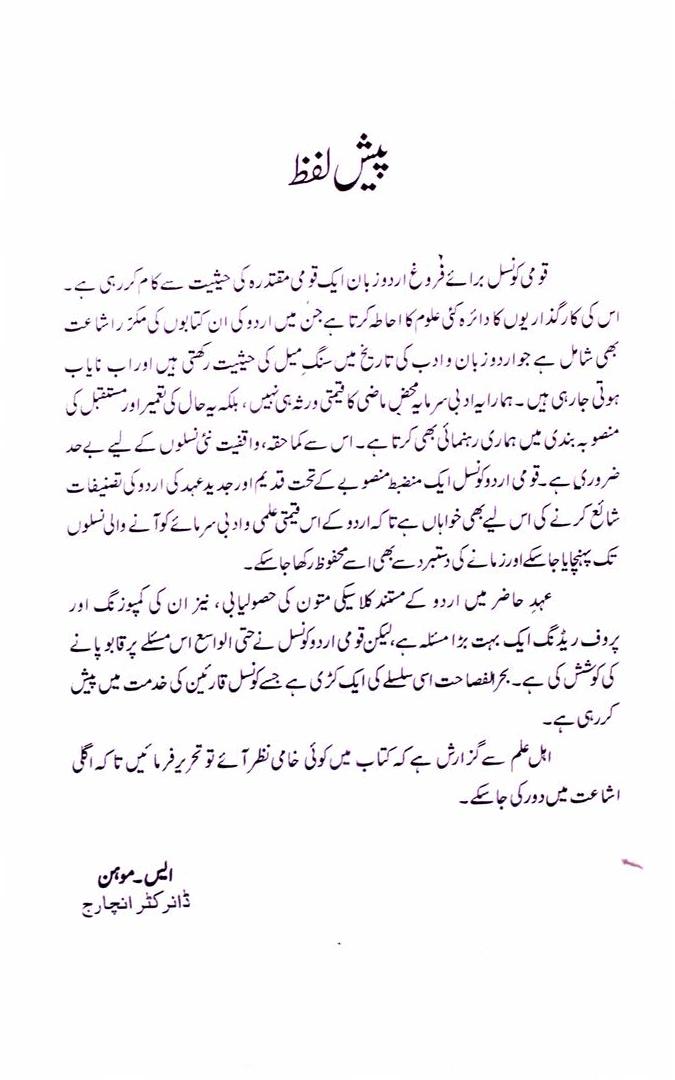 پیش لفظ
قومی کونسل برائے فروغ اردو زبان ایک قومی مقتدرہ کی حیثیت سے کام کررہی ہے۔
اس کی کارگذاریوں کا دائرہ کئی علوم کا احاطہ کرتا ہے جن میں اردو کی ان کتابوں کی مکرّر اشاعت
بھی شامل ہے جو اردو زبان و ادب کی تاریخ میں سنگِ میل کی حیثیت رکھتی ہیں اور اب نایاب
ہوتی جارہی ہیں۔ ہمارا یہ ادبی سرمایہ محض ماضی کا قیمتی ورثہ ہی نہیں، بلکہ یہ حال کی تعمیر اور مستقبل کی
منصوبہ بندی میں ہماری رہنمائی بھی کرتا ہے۔ اس سے کماحقہ، واقفیت نئی نسلوں کے لیے بے حد
ضروری ہے۔ قومی اردو کونسل ایک منضبط منصوبے کے تحت قدیم اور جدید عہد کی اردو کی تصنیفات
شائع کرنے کی اس لیے بھی خواہاں ہے تا کہ اردو کے اس قیمتی علمی و ادبی سرمائے کو آنے والی نسلوں
تک پہنچایا جاسکے اور زمانے کی دستبرد سے بھی اسے محفوظ رکھا جاسکے۔
عہدِ حاضر میں اردو کے مستند کلاسیکی متون کی حصولیابی، نیز ان کی کمپوزنگ اور
پروف ریڈنگ ایک بہت بڑا مسئلہ ہے، لیکن قومی اردو کونسل نے حتی الواسع اس مسئلے پر قابو پانے
کی کوشش کی ہے۔ بحرالفصاحت اسی سلسلے کی ایک کڑی ہے جسے کونسل قارئین کی خدمت میں پیش
کررہی ہے۔
اہلِ علم سے گزارش ہے کہ کتاب میں کوئی خامی نظر آئے تو تحریر فرمائیں تا کہ اگلی
اشاعت میں دور کی جاسکے۔
ایس۔ موہن
ڈائرکٹر انچارج